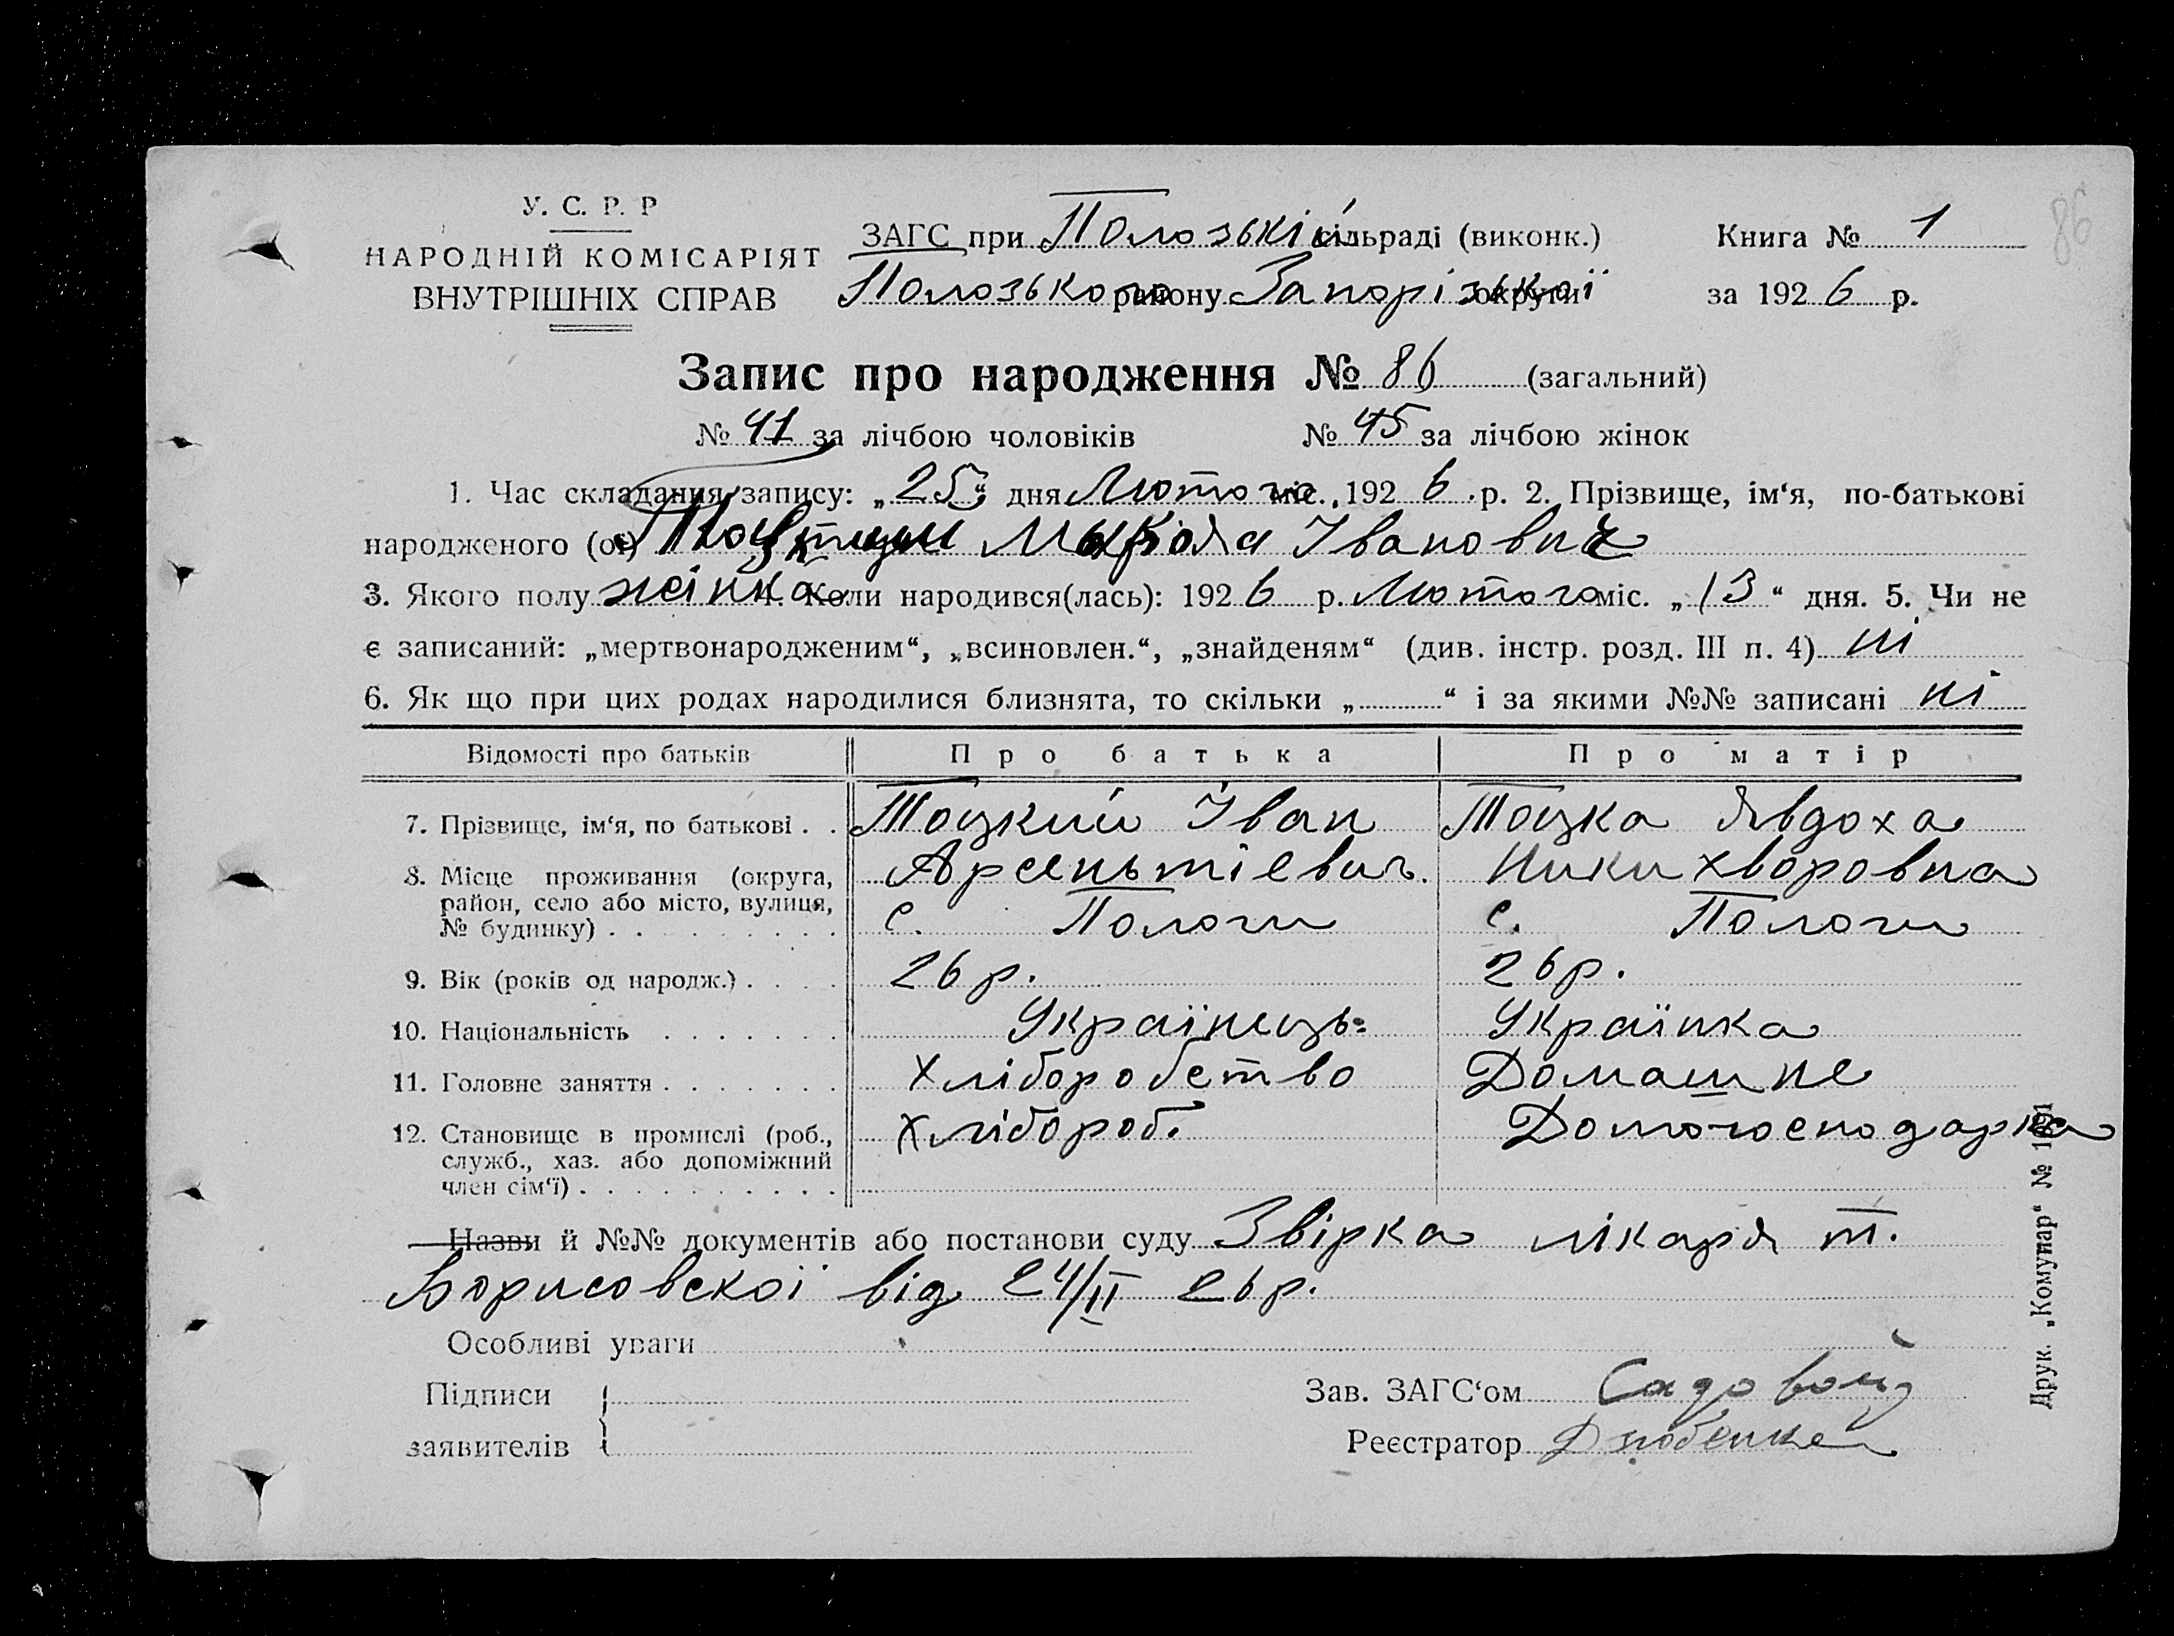 У. С. Р. Р
НАРОДНІЙ КОМІСАРІЯТ
ВНУТРІШНІХ СПРАВ
ЗАГС при Полозькій сільраді (виконк.)
Полозького району Запорізької округи
Книга № 1
за 1926 р.
86
Запис про народження № 86 (загальний)
№ 41 за лічбою чоловіків № 45 за лічбою жінок
1. Час складання запису: „25“ дня Лютого міс. 1926 р. 2. Прізвище, ім‘я, по-батькові
народженого (ої) Микола Іванович
3. Якого полу жінка 4. Коли народився(лась): 1926 р. Лютого міс. „13“ дня. 5. Чи не
є записаний: „мертвонародженим“, „всиновлен.“, „знайденям“ (див. інстр. розд. III п. 4) ні
6. Як що при цих родах народилися близнята, то скільки „ “ і за якими №№ записані ні
Відомості про батьків Про батька Про матір
7. Прізвище, ім‘я, по батькові . . Тоцкий Іван Арсеньтієвич. Тоцка Явдоха Никихворовна
8. Місце проживання (округа, район, село або місто, вулиця, № будинку) . . . с. Пологи с. Пологи
9. Вік (років од народж.) . . . . 26 р. 26 р.
10. Національність . . . . . . . Українець Українка
11. Головне заняття . . . . . . . Хліборобство Домашне
12. Становище в промислі (роб., служб., хаз. або допоміжний член сім‘ї) . . . Хлібороб. Домогосподарка
Назви й №№ документів або постанови суду Звірка лікаря т.
Борисовскої від 24/II 26 р.
Особливі уваги
Підписи
заявителів
Зав. ЗАГС‘ом Садовой
Реєстратор
Друк. „Комунар“ № 1691